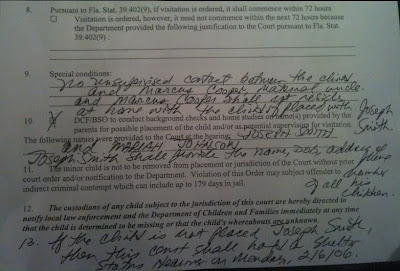 8. Pursuant to Fla. Stat. 39.402(9), if visitation is ordered, it shall commence within 72 hours
Visitation is ordered, however, it need not commence within the next 72 hours because
the Department provided the following justification to the Court pursuant to Fla. Stat.
39.402(9) :
9. Special conditions:
No unsupervised contact between the child
and Marcus Cooper, maternal uncle.
and Marcus Cooper shall not reside
at home with the child if placed with Joseph Smith.
10. X DCF/BSO to conduct background checks and home studies on name(s) provided by the
parents for possible placement of the child and/or as potential supervisors for visitation.
The following names were provided to the Court at the hearing: JOSEPH SMITH
and MARIAH JOHNSON
Joseph Smith shall provide the name, DOB, address & phone number of all his children.
11. The minor child is not to be removed from placement or jurisdiction of the Court without prior
court order and/or notification to the Department. Violation of this Order may subject offender to
indirect criminal contempt which can include up to 179 days in jail.
12. The custodians of any child subject to the jurisdiction of this court are hereby directed to
notify local law enforcement and the Department of Children and Families immediately at any time
that the child is determined to be missing or that the child's whereabouts are unknown.
13. If the child is not placed Joseph Smith,
then this court shall hold a Shelter
Status Hearing on Monday, 2/6/06.